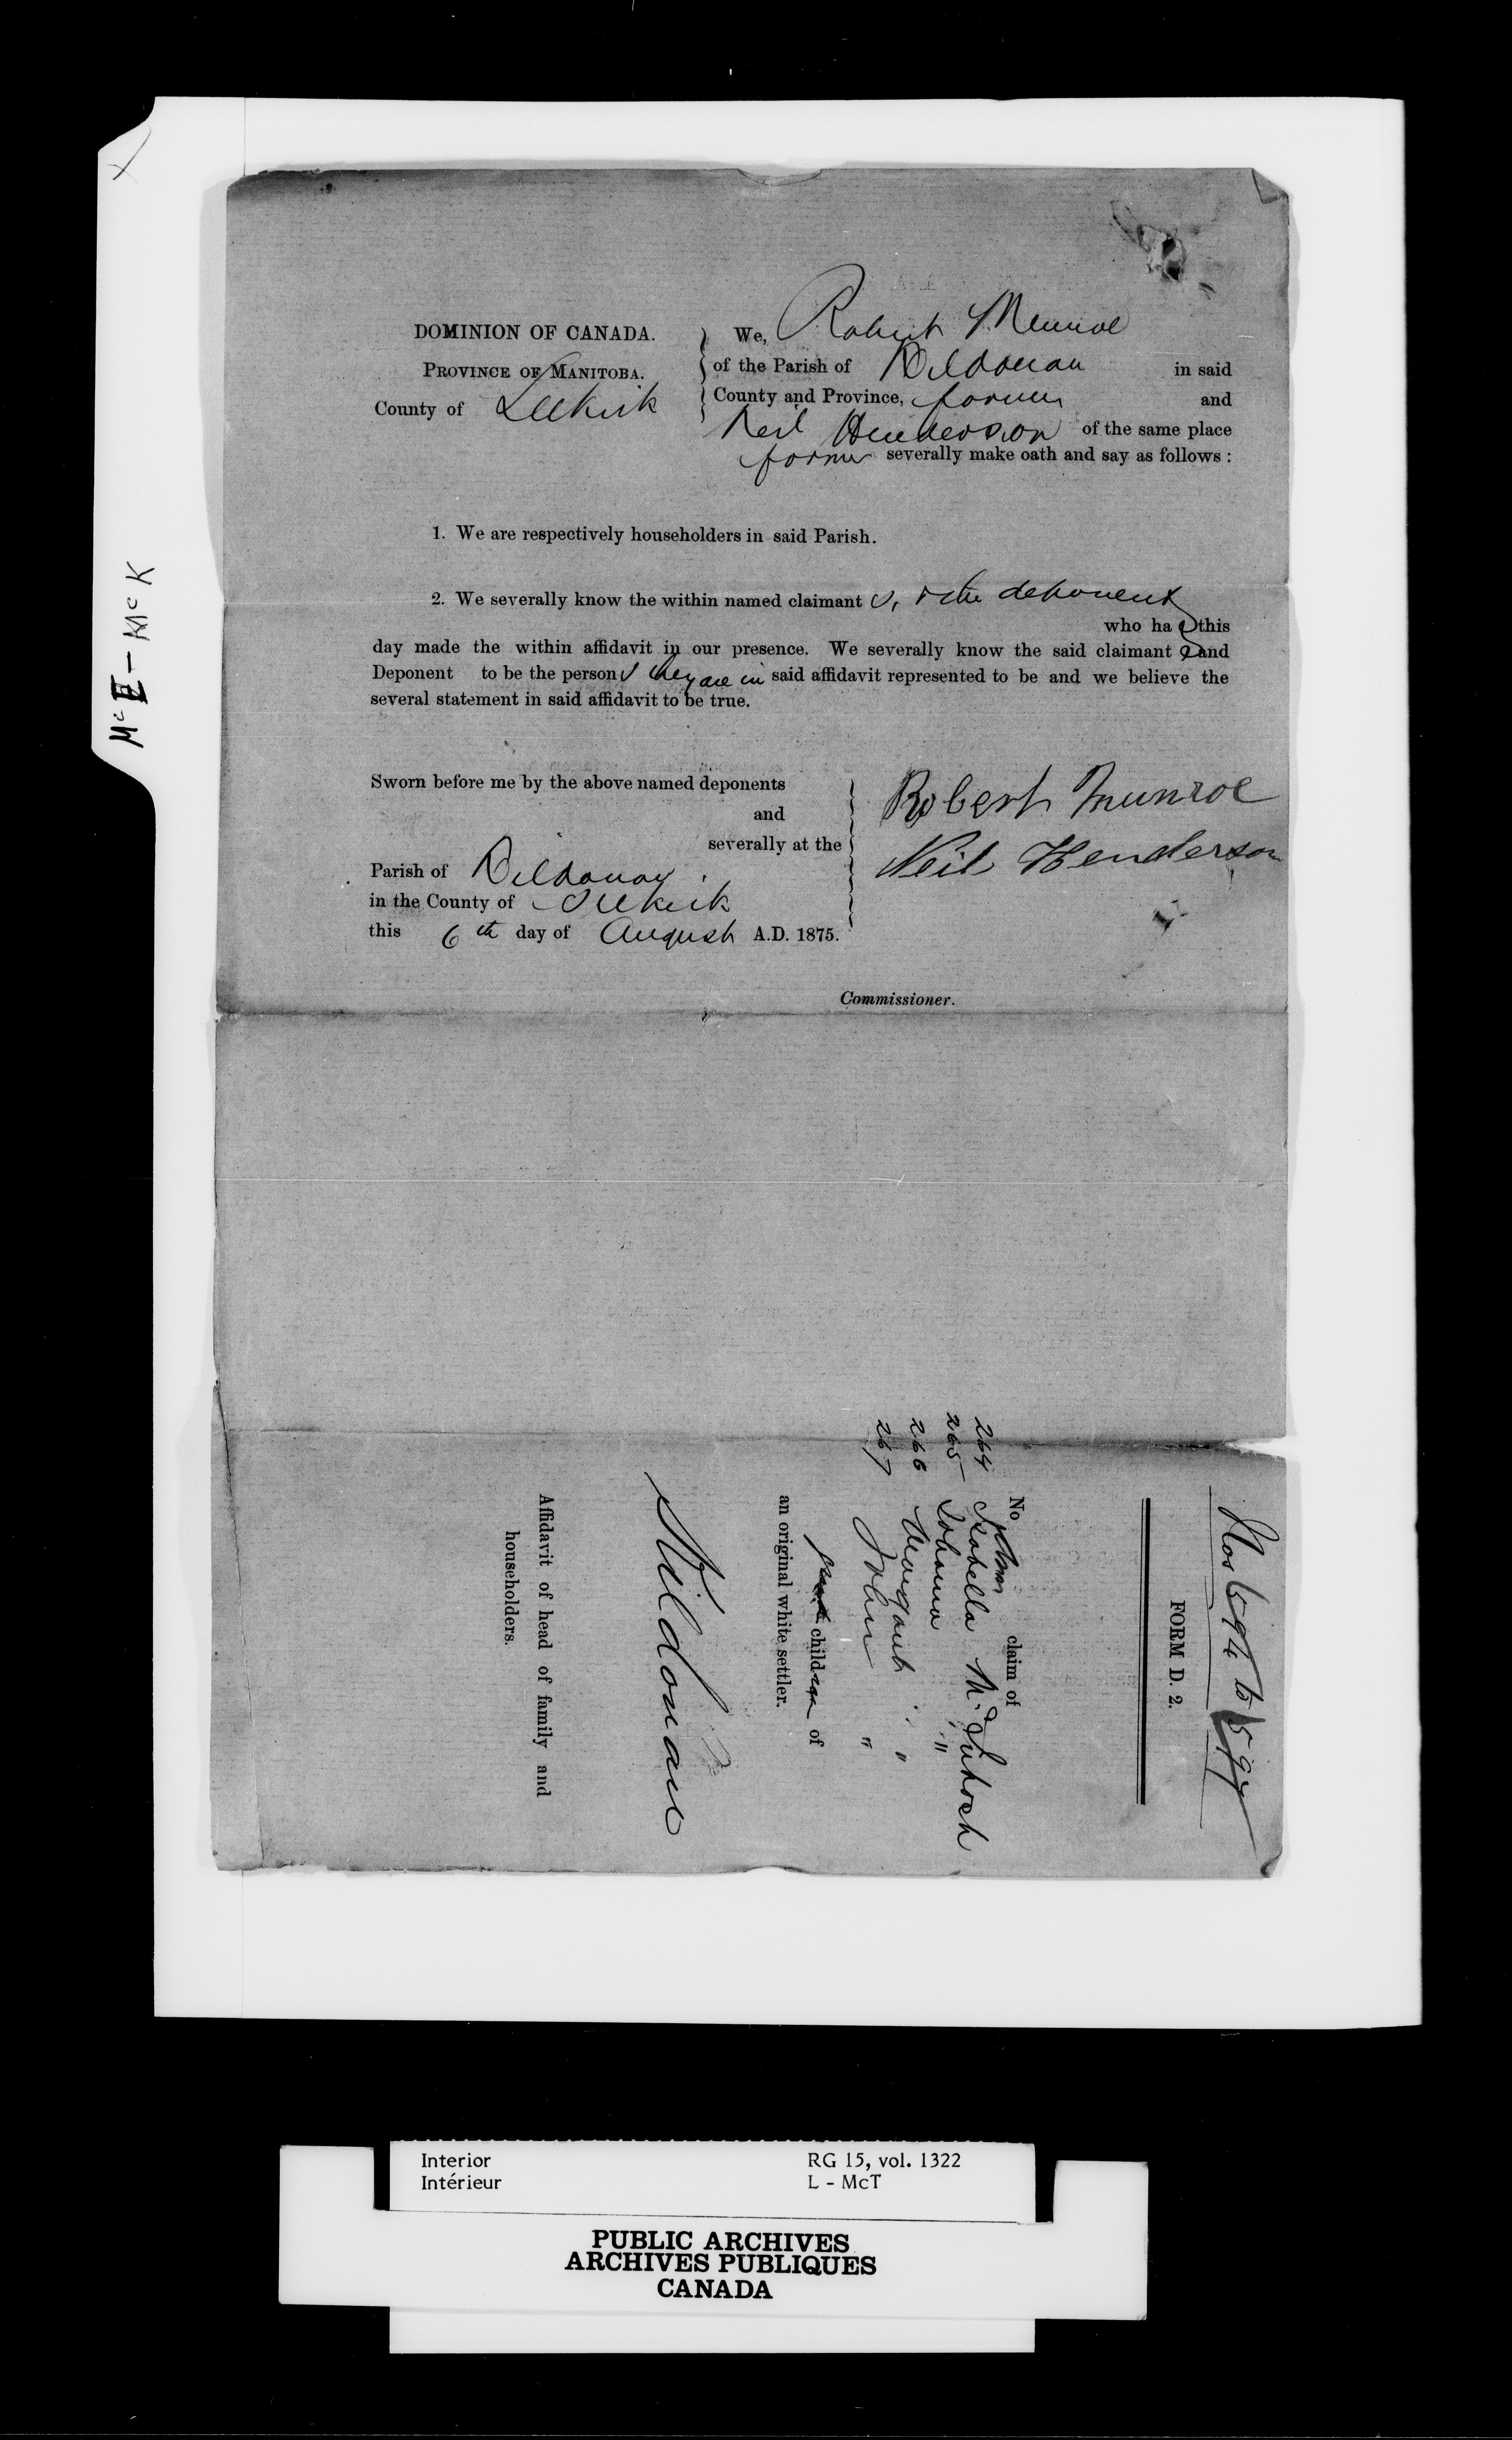 McE - McK
DOMINION OF CANADA.
PROVINCE OF MANITOBA.
County of Selkirk
We, Robert Munroe
of the Parish of Kildonan in said
County and Province, farmer and
Neil Henderson of the same place
farmer severally make oath and say as follows :
1. We are respectively householders in said Parish.
2. We severally know the within named claimant s, & the deponent
who ha s this
day made the within affidavit in our presence. We severally know the said claimant s and
Deponent to be the person s they are in said affidavit represented to be and we believe the
several statement in said affidavit to be true.
Sworn before me by the above named deponents
and
severally at the
Parish of Kildonan
in the County of Selkirk
this 6th day of August A.D. 1875.
Robert Munroe
Neil Henderson
Commissioner.
Nos 594 to 597
FORM D. 2.
No claim of
264 Isabella McIntosh
265 Johanna " "
266 Margaret " "
267 John "
children of
an original white settler.
Kildonan
Affidavit of head of family and
householders.
Interior RG 15, vol. 1322
Intérieur L - McT
PUBLIC ARCHIVES
ARCHIVES PUBLIQUES
CANADA